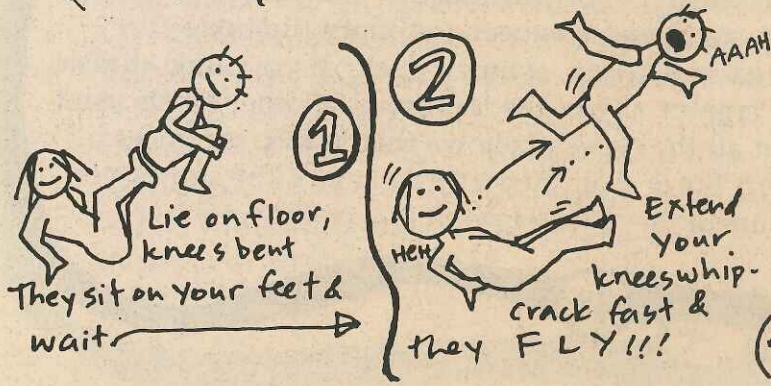 1
Lie on floor,
knees bent
They sit on your feet &
wait
2
AAAH
HEH
Extend
your
knees whip-
crack fast &
they FLY!!!